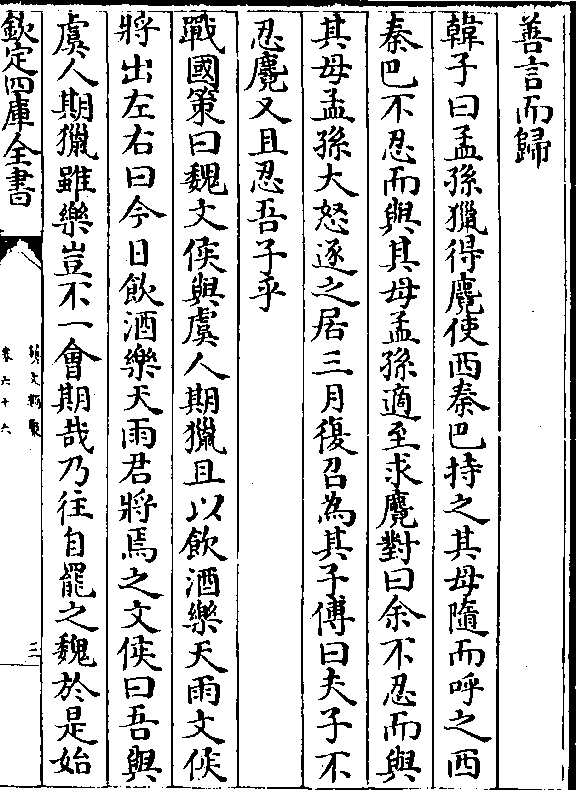 善言而歸
韓子曰孟孫獵得麑使西秦巴持之其母隨而呼之西
秦巴不忍而與其母孟孫適至求麑對曰余不忍而與
其母孟孫大怒逐之居三月復召為其子傅曰夫子不
忍麑又且忍吾子乎
戰國策曰魏文侯與虞人期獵且以飲酒樂天雨文侯
將出左右曰今日飲酒樂天雨君將焉之文侯曰吾與
虞人期獵雖樂豈不一會期哉乃往自罷之魏於是始
欽定四庫全書
藝文類聚
卷六十六
三